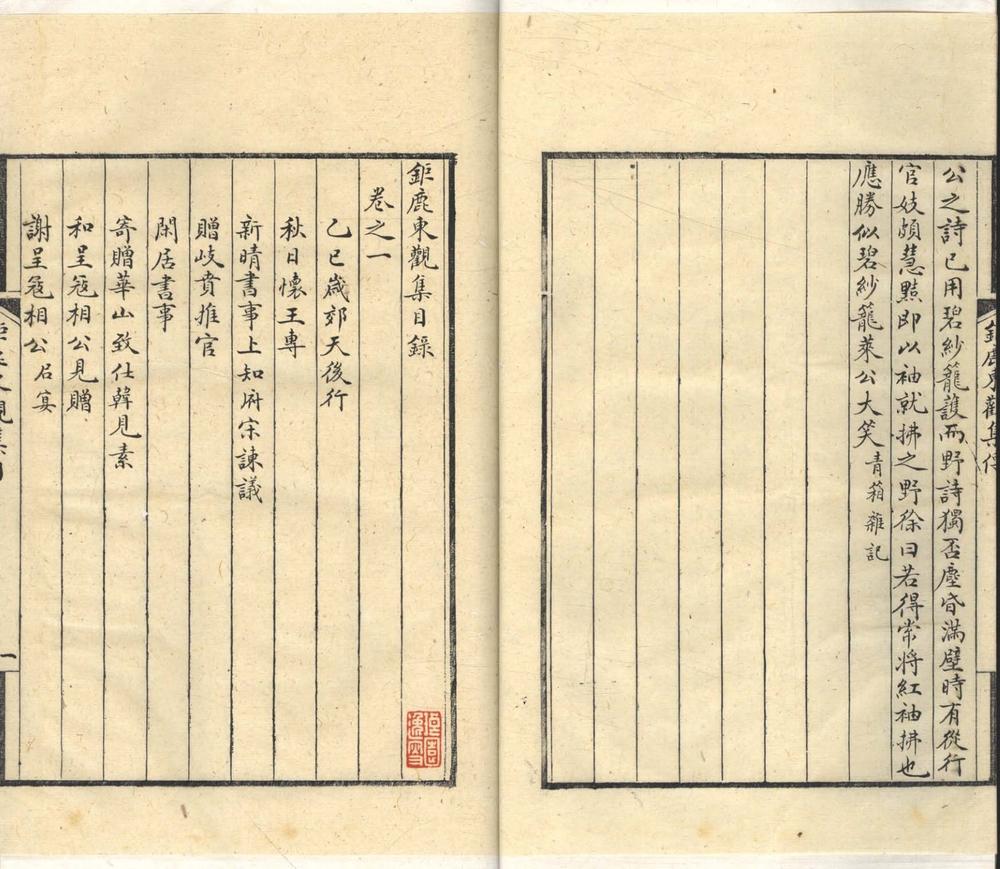 公之詩已用碧紗籠護而野詩獨否塵昏滿壁時有從行
官妓頗慧黠即以袖就拂之野徐曰若得常將紅袖拂也
應勝似碧紗籠萊公大笑青箱雜記
鉅鹿東觀集目錄
卷之一
乙巳歲郊天後行
秋日懷王專
新晴書事上知府宋諫議
贈岐賁推官
閑居書事
寄贈華山致仕韓見素
和呈寇相公見贈
謝呈寇相公名宴